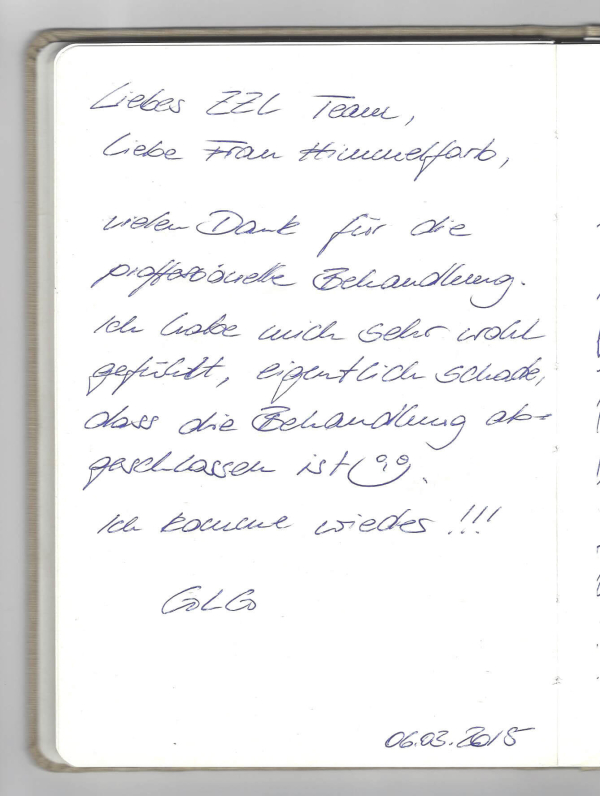 Liebes ZZL Team,
Liebe Frau Himmelfarb,
vielen Dank für die
proffessionelle Behandlung.
Ich habe mich sehr wohl
gefühlt, eigentlich schade,
dass die Behandlung ab=
geschlossen ist.
Ich komme wieder !!!
GoLGo
06.03.2015